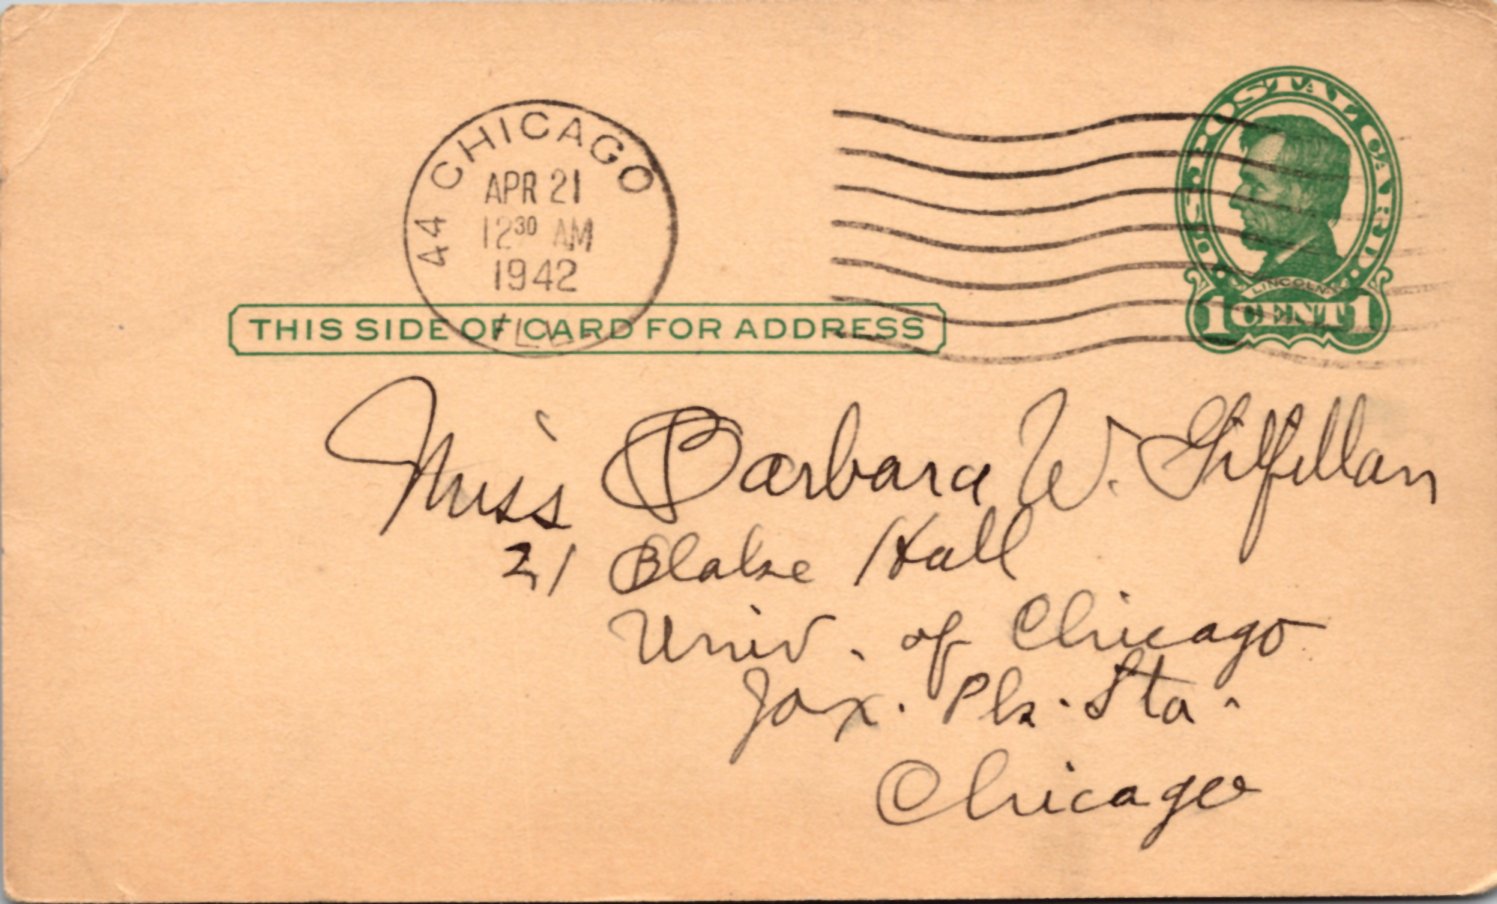 44 CHICAGO
APR 21
12³⁰ AM
1942
ILL.
U.S. POSTAL CARD
LINCOLN
1 CENT 1
THIS SIDE OF CARD FOR ADDRESS
Miss Barbara W. Gilfillan
21 Blake Hall
Univ. of Chicago
Jax. Pk. Sta.
Chicago